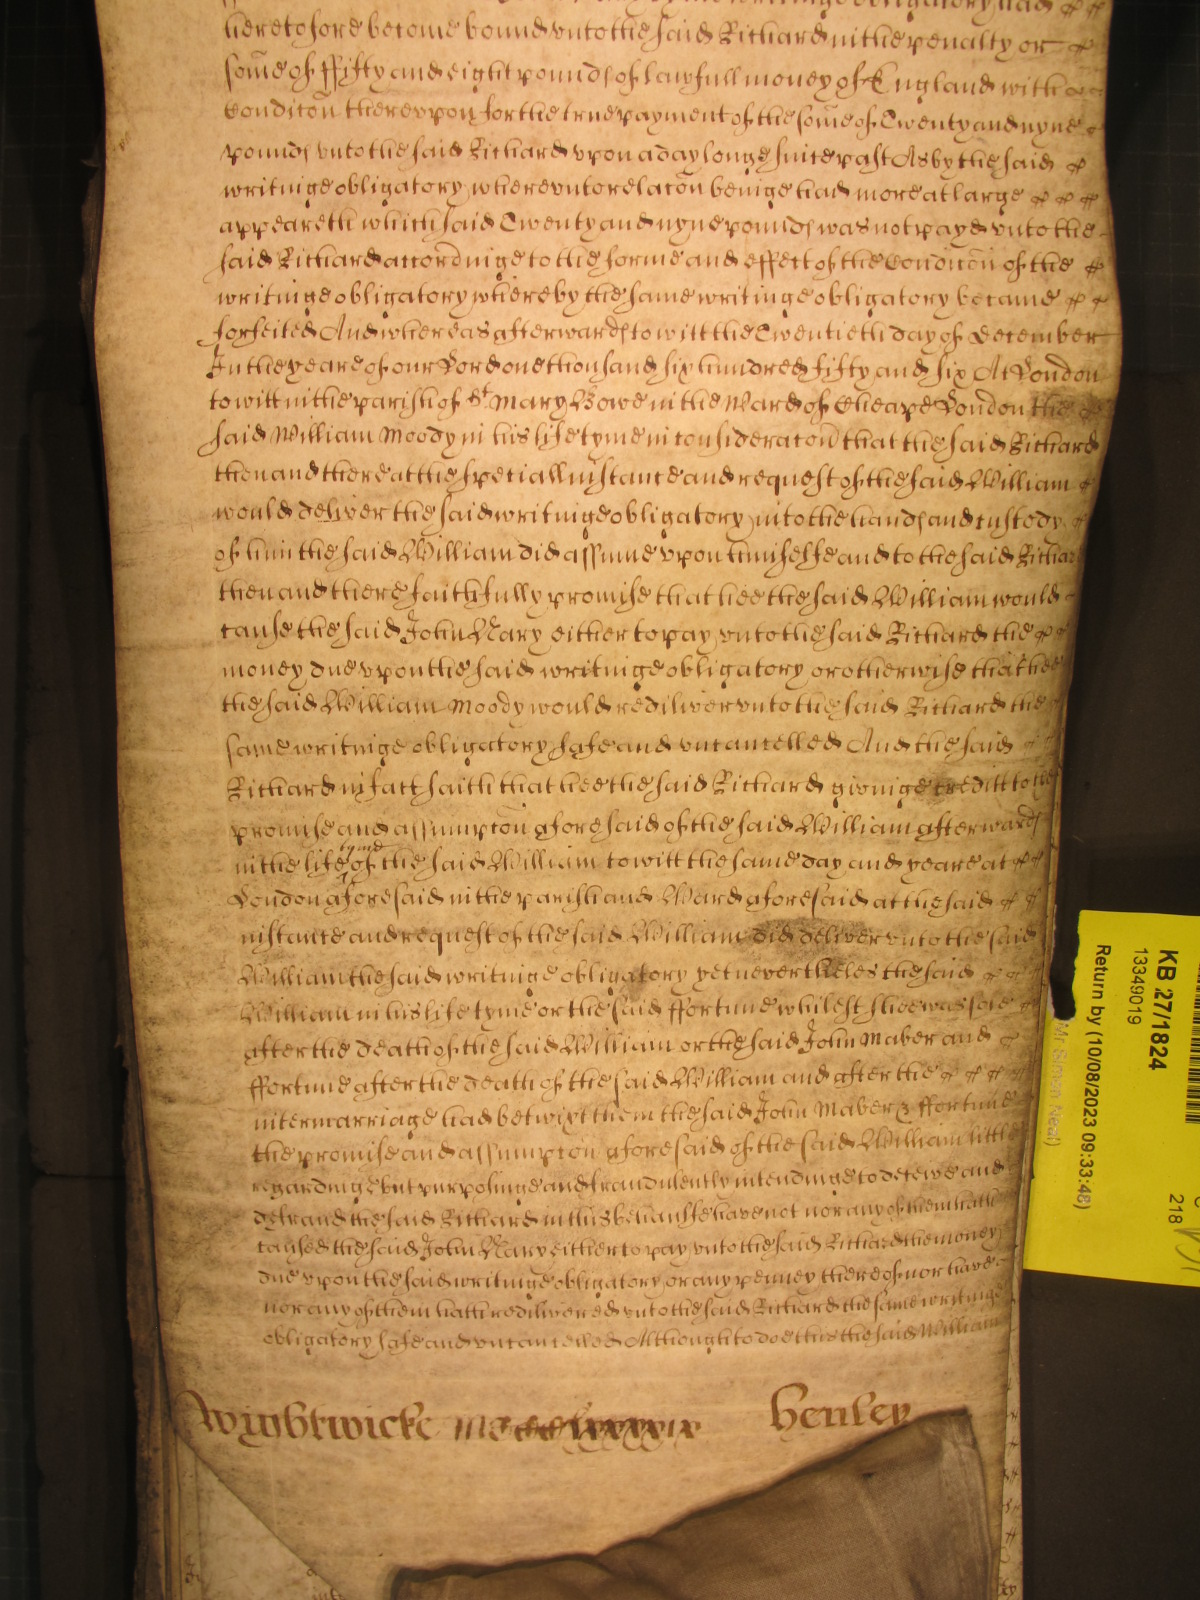 writinge obligatory had
heretofore become bound unto the said Richard in the penalty or
some of ffifty and eight pounds of lawfull money of England with a
Condicon thereupon for the true payment of the some of Twenty and nyne
pounds unto the said Richard upon a day longe since past As by the said
writinge obligatory whereunto relacon beinge had more at large
appeareth which said Twenty and nyne pounds was not payd unto the
said Richard accordinge to the forme and effect of the Condicon of the
writinge obligatory whereby the same writinge obligatory became
forfeited And whereas afterwards to witt the Twentieth day of December
In the yeare of our Lord one thousand six hundred fifty and six At London
to witt in the parish of St Mary Bowe in the Ward of Cheape London the
said William Moody in his life tyme in consideracon that the said Richard
then and there at the speciall instance and request of the said William
would deliver the said writinge obligatory into the hands and custody
of him the said William did assume upon himselfe and to the said Richard
then and there faithfully promise that hee the said William would
cause the said John Nary either to pay unto the said Richard the
money due upon the said writinge obligatory or otherwise that hee
the said William Moody would rediliver unto the said Richard the
same writinge obligatory safe and uncancelled And the said
Richard in fact saith that hee the said Richard givinge creditt to the
promise and assumpcon aforesaid of the said William afterwards
in the life tyme of the said William to witt the same day and yeare at
London aforesaid in the parish and Ward aforesaid at the said
instance and request of the said William did deliver unto the said
William the said writinge obligatory yet neverthelės the said
William in his life tyme or the said ffortune whilest shee was sole
after the death of the said William or the said John Maber and
ffortune after the death of the said William and after the
intermarriage had betwixt them the said John Maber & ffortune
the promise and assumpcon aforesaid of the said William little
regardinge but purposinge and fraudulently intendinge to deceive and
defraud the said Richard in this behaulfe have not nor any of them hath
caused the said John Nary either to pay unto the said Richard the money
due upon the said writinge obligatory or any penney thereof nor have
nor any of them hath redilivered unto the said Richard the same writinge
obligatory safe and uncancelled Although to doe this the said William
Wightwicke Henley
KB 27/1824
13349019
Return by (10/08/2023 09:33:48)
Mr Simon Neal)
218